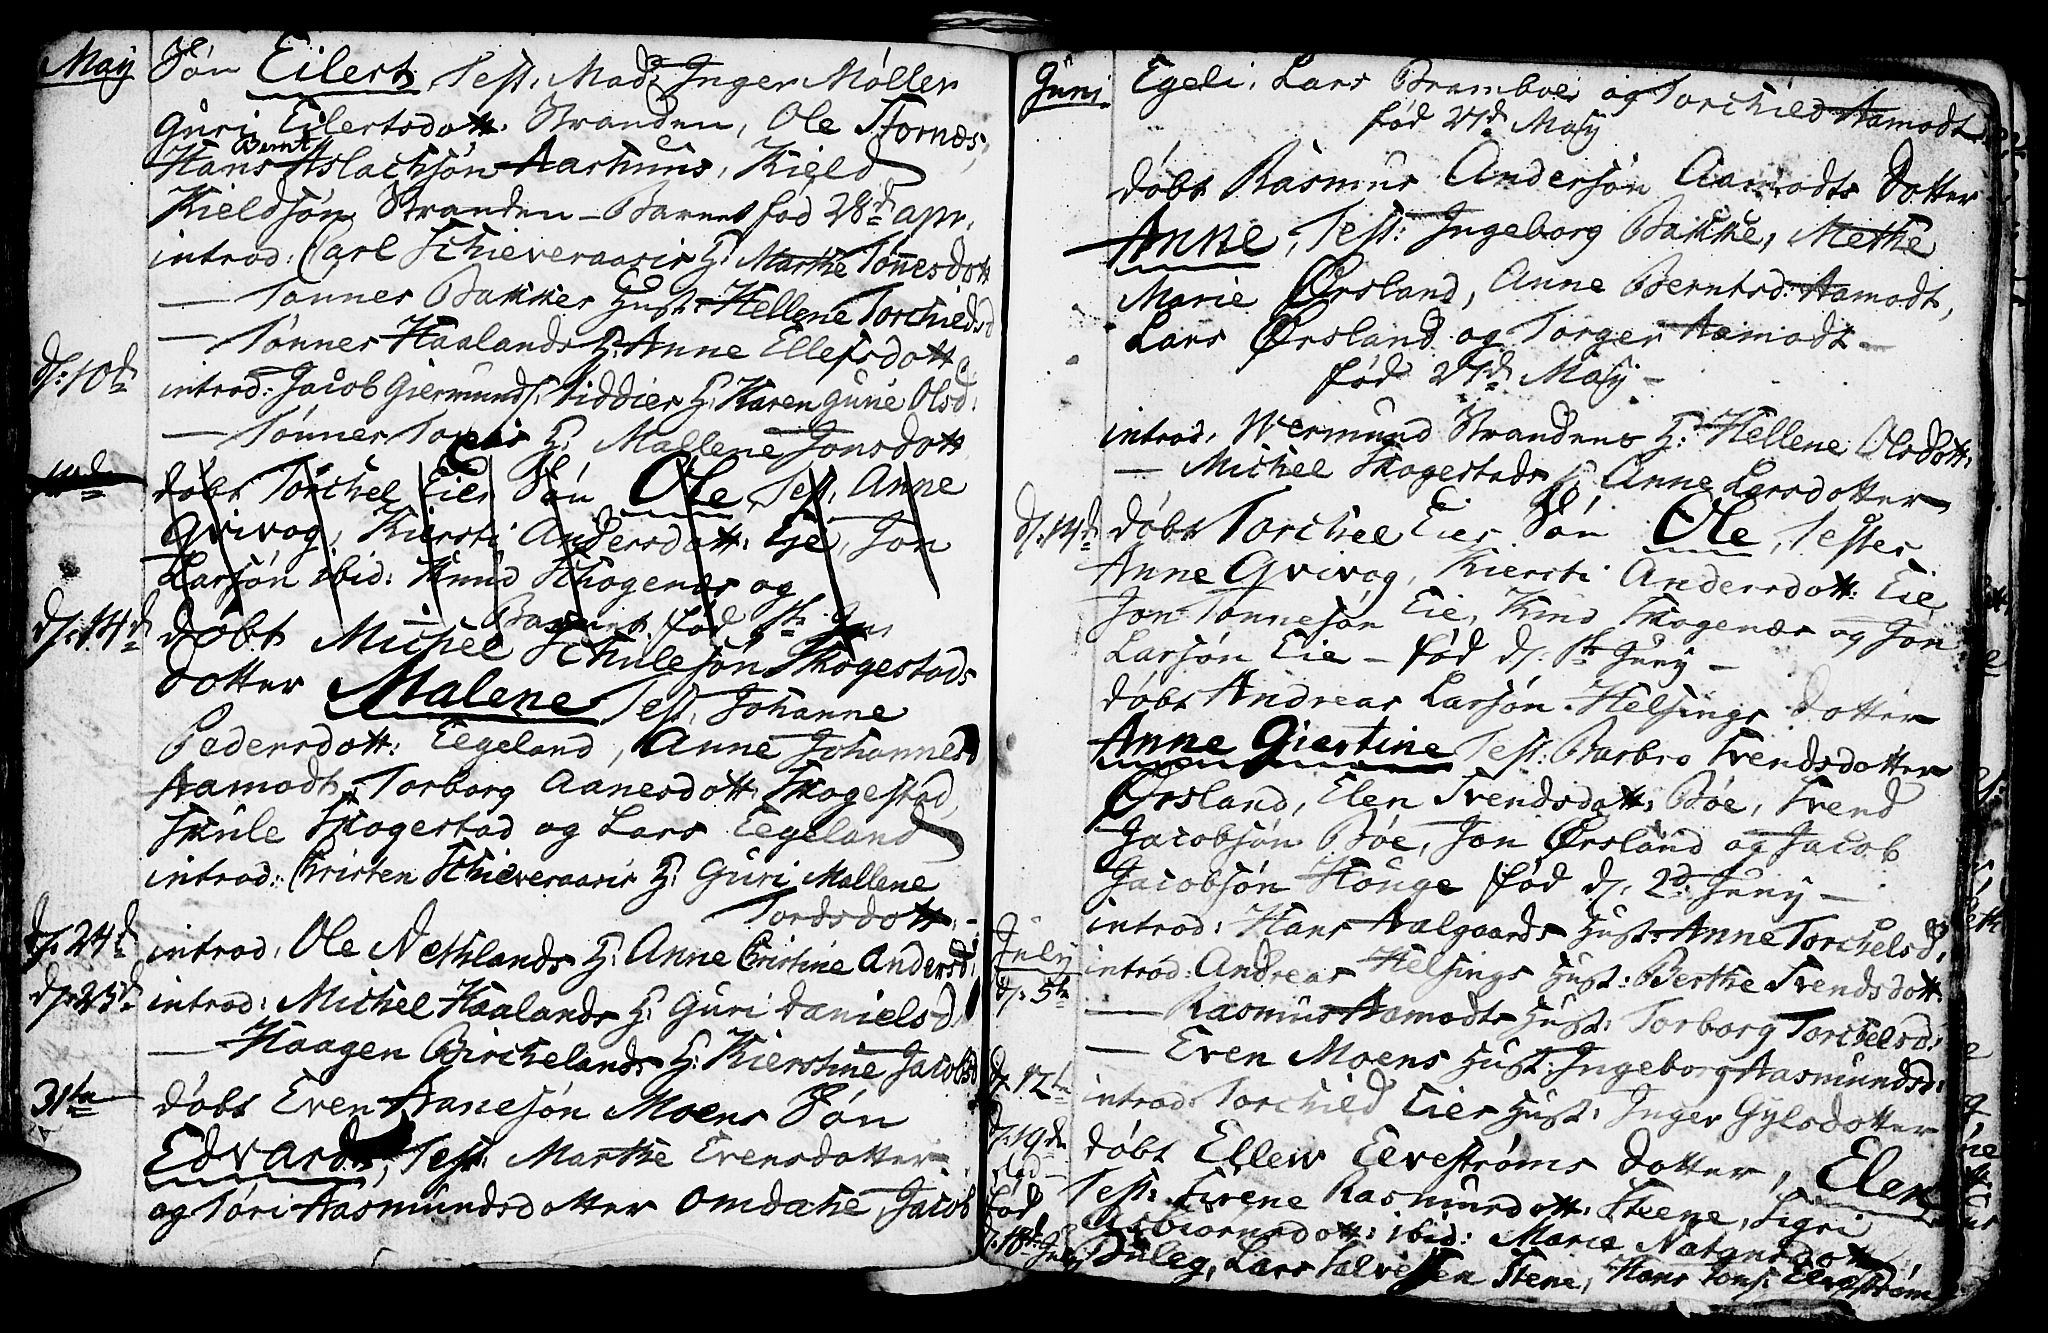 May
Søn Eilert, Test. Mad: Inger Møller
Guri Eilertsdott: Stranden, Ole Stornæs,
Bernt
Hans Aslachsøn Aarhuus, Kield
Kieldsøn Stranden – Barnet fød 28d apr.
introd: Carl Schieveraasis H: Marthe Tønnesdott
— Tønnes Bakkes Hust: Hellene Torchieldsd
— Tønnes Haalands H: Anne Ellefsdott
d: 10de
introd: Jacob Giermunds: Siddies H: Karen Gune Olsd:
— Tønnes H: Mallene Jonsdott
døbt Torchel Eies Søn Ole, Test. Anne
Qvivog, Kiersti Andersdott: Eje, Jon
Larsøn ibid: Knud Schogenes og
Barnet fød
d: 14de
døbt Michel Schulesøn Skogestads
dotter Malene Test. Johanne
Pedersdott: Eegeland, Anne Johannesd
Aamodt, Torborg Aanesdott: Skogestad,
Skule Skogestad og Lars Eegeland
introd: Christen Schieveraasis H: Guri Mallene
Tordsdott: -
d: 24de
introd, Ole Nethlands H: Anne Christine Andersd:
d: 25de
introd: Michel Haalands H: Guri Danielsd
— Haagen Birchelands H: Kierstine Jacobsd
31te
døbt Even Aanesøn Moens Søn
Edvard, Test: Marthe Evensdotter
og Tøri Aasmundsdotter Omdahe, Jacob
Juni
Egeli, Lars Bramboe og Torchild Aamodt
fød 27d May
døbt Rasmus Andersøn Aamodts Dotter
Anne, Test: Ingeborg Bakke, Methe
Marie Ørsland, Anne Berntsd: Aamodt,
Lars Ørsland og Torger Aamodt –
fød 27d May –
introd, Wermund Strandens H: Hellene Olsdott:
— Michel Skogestads H: Anne Larsdotter
d: 14de
døbt Torchel Eies Søn Ole, Testes
Anne Qvivog, Kiersti Andersdott: Eie
Jon Tønnesøn Eie, Knud Skogenes og Jon
Larsøn Eie – fød d: Juny –
døbt Andreas Larsøn Helsings Dotter
Anne Giertine Test: Barbro Svendsdotter
Ørsland, Elen Svendsdott: Bøe, Svend
Jacobsøn Bøe, Jon Ørsland og Jacob
Jacobsøn Houge fød d: 2d: Juny –
introd: Hans Aalgaards Hust: Anne Torchelsd:
July
d: 5te
introd: Andreas Helsings Hust: Berthe Svendsdott
— Rasmus Aamodts Hust: Torborg Torchelsd:
— Even Moens Hust: Ingeborg Aasmundsd:
d: 12te
introd: Torchild Eies Hust: Inger Gylsdotter
d: 19de
døbt Ellew Eevestrøms Dotter, Elen
fød
Test: Sirene Rasmusdott: Steene, Sigri
Asbiornsdott: ibid: Marie
d: 18d: July
Duleg, Lars Salvesen Stene, Hans Tons: Elvestrøm